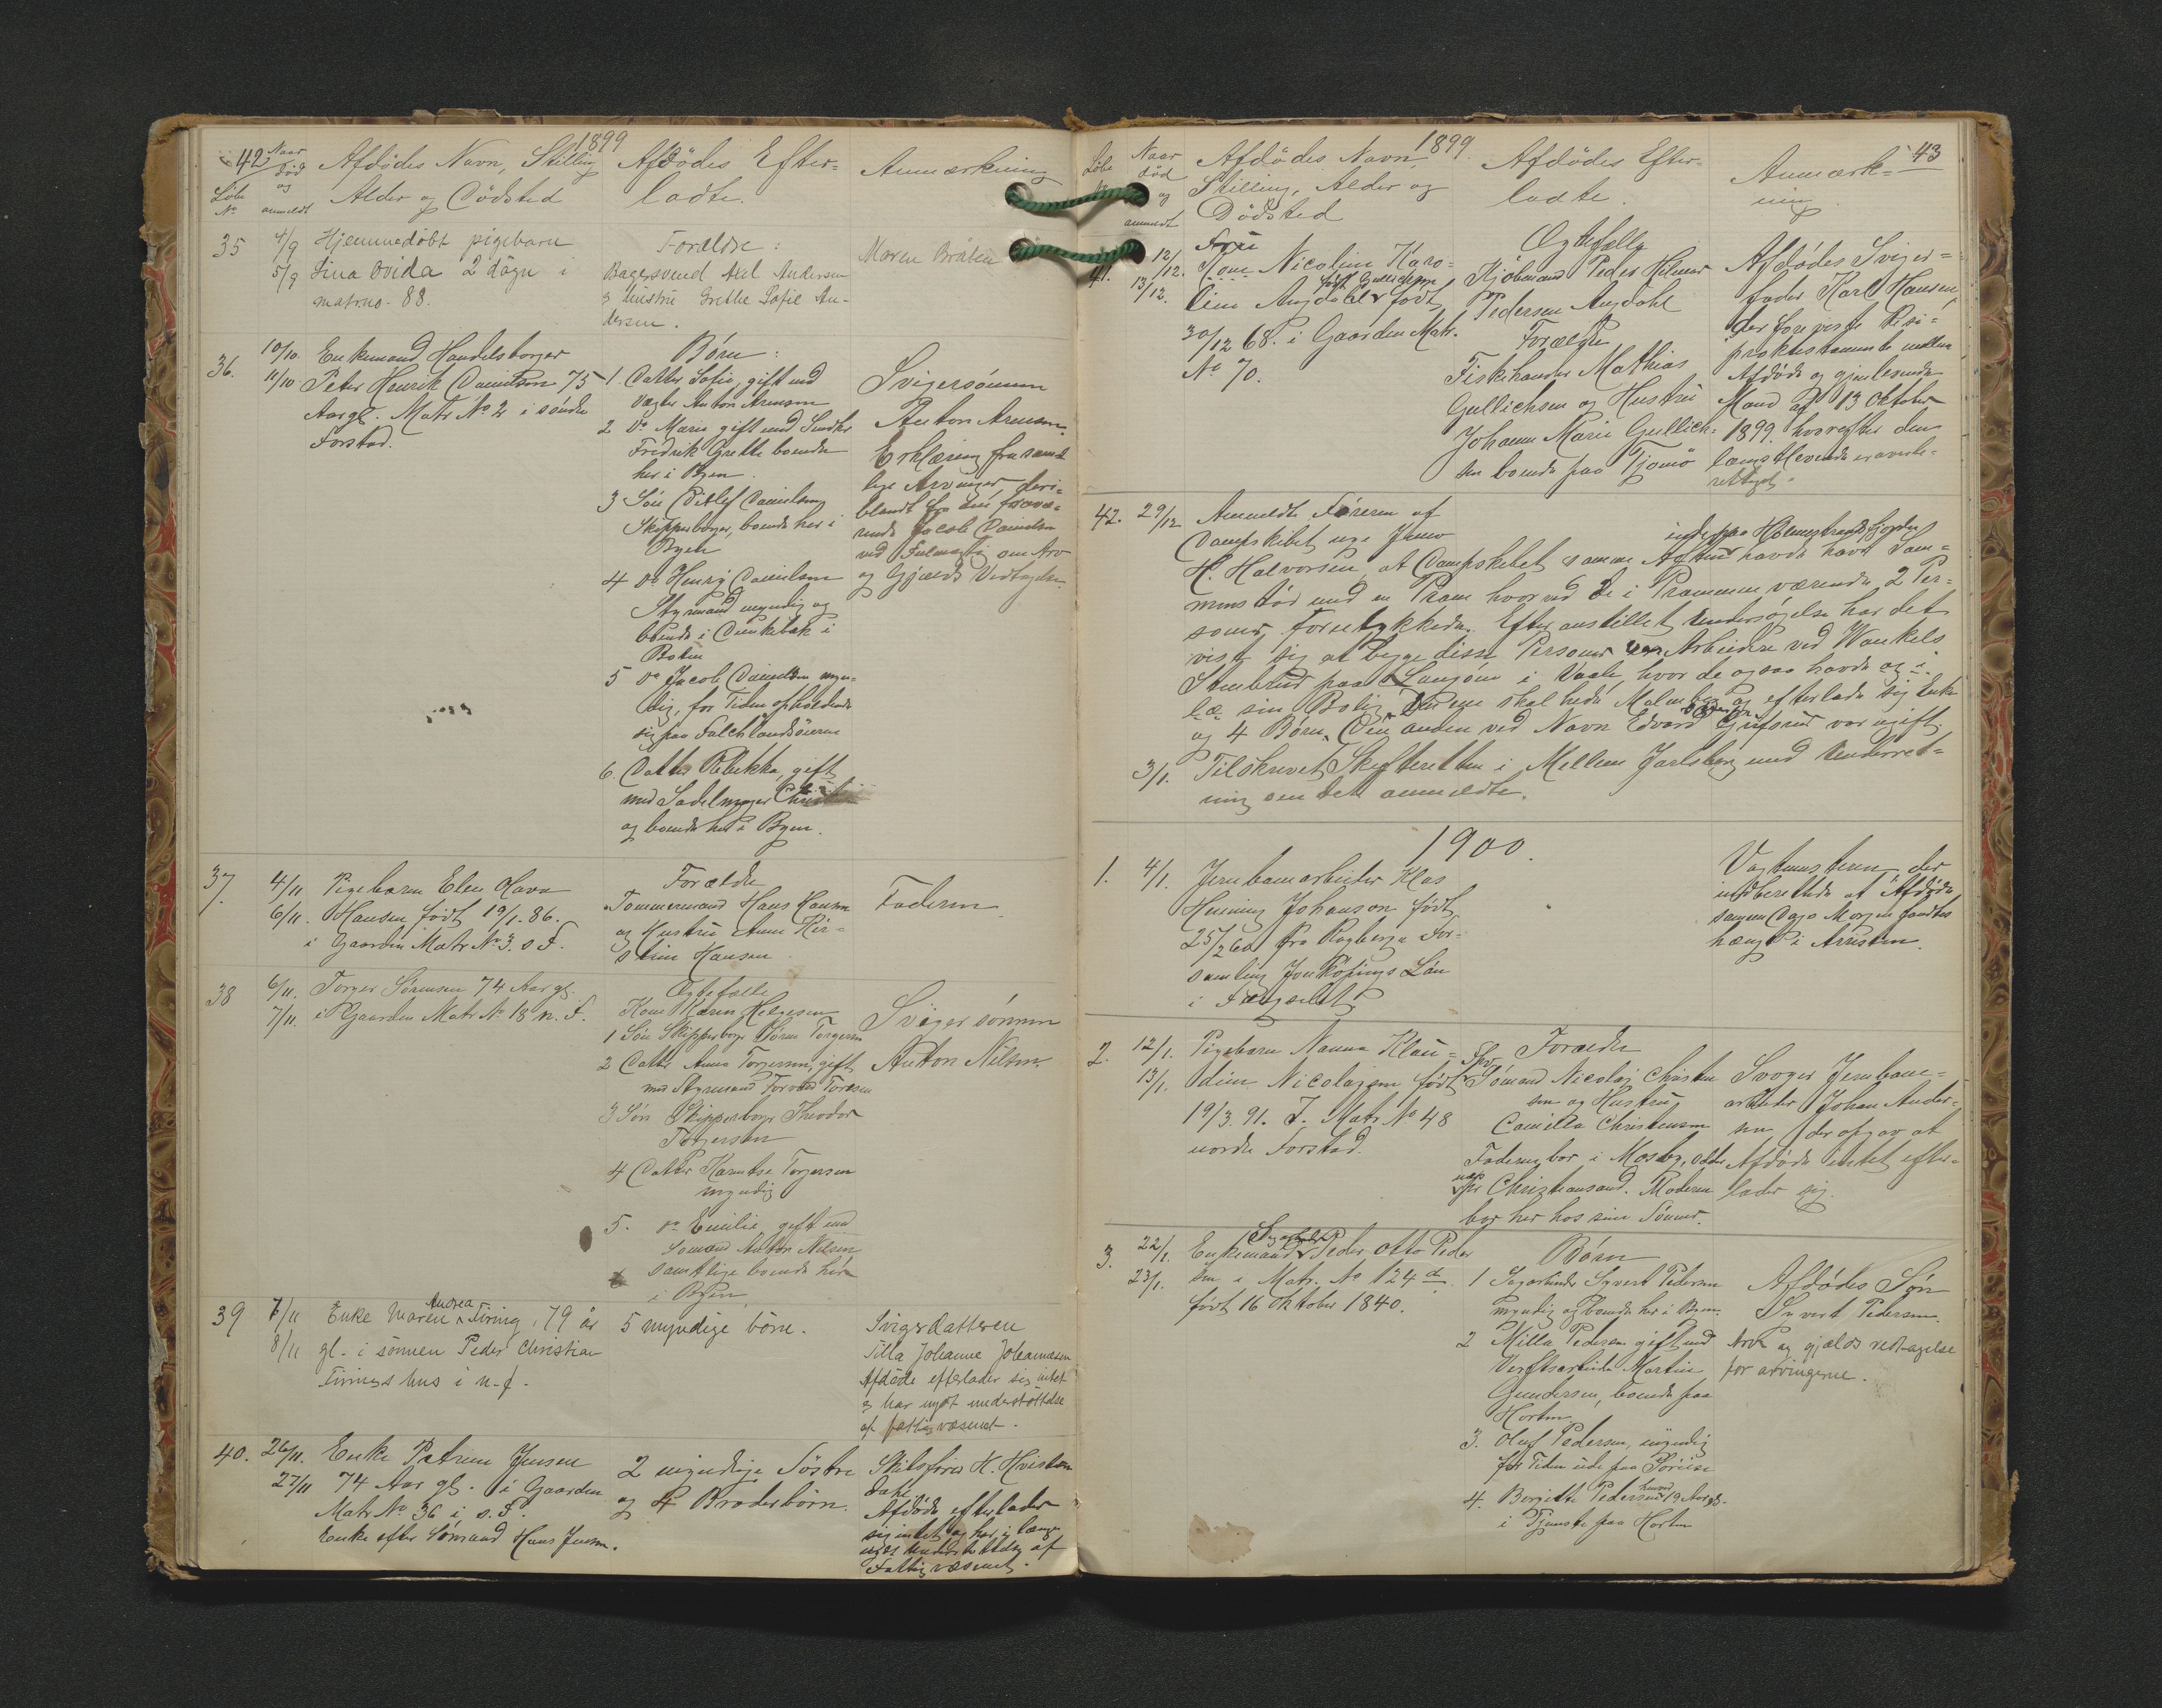 42
1899
Naar död og anmeldt
Löbe No
Afdödes Navn, Stilling
Alder og Dödsted
Afdödes Efter-
ladte.
Anmærkning
35
4/9
5/9
Hjemmedöbt pigebarn
Lina Ovida 2 dögn i
matrno. 88.
Forældre:
Bagersvend Axel Andersen
& hustru Grethe Sofie An-
dersen.
Maren Bråten
36.
10/10.
11/10
Enkemand, Handelsborger
Peter Henrik Danielsen 75
Aar gl. Matr No 2 i söndre
Forstad.
Börn:
1. Datter Sofie, gift med
Vægter Anton Arnesen
2 Do Marie gift med Snedker
Fredrik Grette boende
her i Byen.
3 Sön Ditlef Danielsen
Skipperborger, boende her i
Byen
4 Do Henrij Danielsen
Styrmand myndig og
boende i
Bolin
5 Do Jacob Danielsen myn-
dig, for Tiden opholdende
sig paa Falchlandsöerne
6. Datter Rebekka, gift
med Sadelmager
og boende her i Byen.
Svigersönnen
Anton Arnesen.
Erklæring fra samt-
lige Arvinger, deri-
blandt fra den fravæ-
rende Jacob Danielsen
ved Fuldmægtig om Arv
og Gjælds Vedtagelse.
37.
4/11
6/11.
Pigebarn Elen Olava
Hansen födt 19/1. 86.
i Gaarden Matr No 3. s F.
Forældre
Tömmermand Hans Hansen
og Hustru Anne Kir-
stine Hansen
Faderen
38
6/11.
7/11.
Torger Sörensen 74 Aar gl.
i Gaarden Matr No 18 n. F.
Ægtefælle
Kone Karen Helgesen
1 Sön Skipperborger Sören Torgersen
2 Datter Anna Torgersen, gift
med Styrmand Torvald Toresen
3 Sön Skipperborger Theodor
Torgersen
4 Datter Karentse Torgersen
myndig
5. Do Emilie, gift med
Sömand Anton Nilsen
samtlige boende her
i Byen
Svigersönnen
Anton Nilsen.
39
7/11
8/11
Enke Maren Andrea Firing, 79 år
gl. i sönnen Peder Christian
Firings hus i n. f.
5 myndige börn.
Svigerdatteren
Tilla Johanne Johannesen
Afdöde efterlader sig intet
& har nydt understöttelse
af fattigvæsenet.
40.
26/11.
27/11
Enke Petrine Jensen
74 Aar gl. i Gaarden
Matr No 36 i s. F.
Enke efter Sömand Hans Jensen.
2 myndige Söstre
og 4 Broderbörn.
Skibsförer H. Hvisten
dahl
Afdöde efterlader
sig intet og har i længe
nydt Understöttelse af
Fattigvæsenet.
43
1899.
Löbe No
Naar död og anmeldt
Afdödes Navn,
Stilling, Alder og
Dödsted
Afdödes Efter-
ladte.
Anmærk-
ning
41.
12/12.
13/12.
Fru
Kone Nicoline Karo-
line Angdahl född Gullichsen födt
30/12 68. i Gaarden Matr.
No 70.
Ægtefælle
Kjöbmand Peder Helmer
Pedersen Angdahl
Forældre
Fiskehandler Mathias
Gullichsen og Hustru
Johanne Marie Gullich-
sen boende paa Tjömö
Afdödes Sviger-
fader Karl Hansen
der foreviste Resi-
prokt testamente mellem
Afdöde og gjenlevende
Mand af 13 Oktober
1899. hvorefter den
længstlevende er arvebe-
rettiget.
42.
29/12
Anmeldte Föreren af
Dampskibet Juno
H. Halvorsen, at Dampskibet samme Aften ude paa Holmestrandsfjorden havde havt Sam-
menstöd med en Pram hvorved de i Prammen værende 2 Per-
soner forulykkede. Efter anstillet Undersögelse har det
vist sig at begge disse Personer var Arbeidere ved Wankels
Stenbrud paa Langöen i Vaale, hvor de ogsaa havde og
sin Bolig. Den ene skal hede Malmberg og efterlade sig Enke
og 4 Börn. Den anden ved Navn Edvard var ugift.
3/1.
Tilskrevet Skifteretten i Mellem Jarlsberg med Underret-
ning om det anmeldte.
1900.
1.
4/1.
Jernbanearbeider Klas
Henning Johanson födt
25/2 60 fra Rogberga For-
samling Jonköpings Län
i Fængselet
Vagtmesteren der
indberettede at Afdöde
samme Dags Morgen fandtes
hængt i Arresten.
2.
12/1.
13/1.
Pigebarn Nanna Klau-
dine Nicolajsen födt
19/3. 91. I. Matr No 48
nordre Forstad.
Forældre
Sömand Nicolaj Christen
sen og Hustru
Camilla Christensen
Faderen bor i Mosby, eller
Christiansand. Moderen
bor her hos sine Sönner.
Svoger Jernbane-
arbeider Johan Ander-
sen der opgav at
Afdöde intet efter-
lader sig.
3.
22/1.
23/1.
Enkemand Sagarbeider Peder Otto Peder
sen i Matr. No 124 d
födt 16 Oktober 1840.
Börn
1 Sagarbeider Syvert Pedersen
myndig og boende her i Byen.
2 Milla Pedersen gift med
Verftsarbeider Martin
Gundersen, boende paa
Horten.
3. Oluf Pedersen, myndig
for Tiden ude paa
4. Borgitte Pedersen henved 19 Aar gl.
i Tjeneste paa Horten
Afdödes Sön
Syvert Pedersen.
Arv og gjælds vedtagelse
for arvingerne.